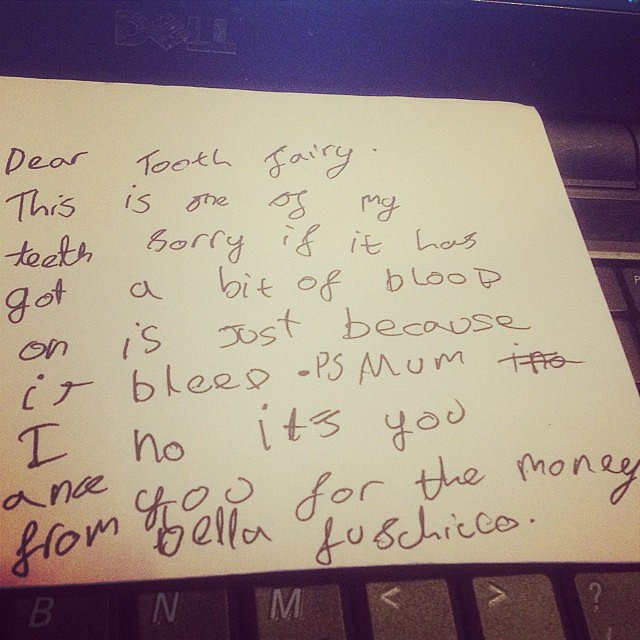 DELL
Dear Tooth fairy.
This is one of my
teeth sorry if it has
got a bit of blood
on is Just because
it bleed .PS MUM ino
I no it's you
ance you for the money
from bella fuschicco.
B N M < > ?